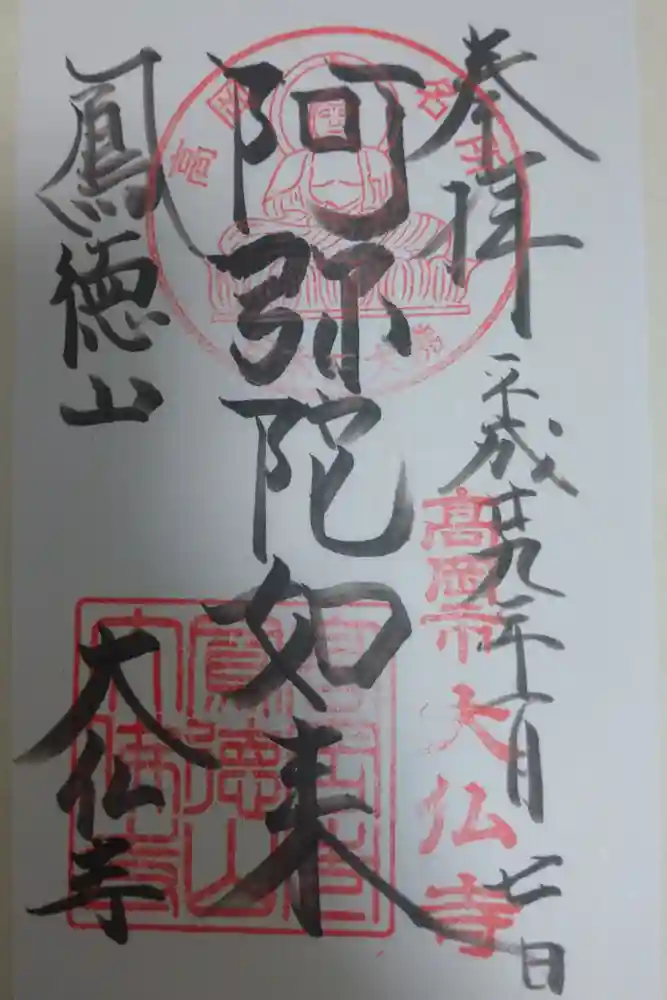 奉拝
平成廿九年一月廿一日
高岡市
大仏寺
阿弥陀如来
鳳徳山
大仏寺
鳳徳山